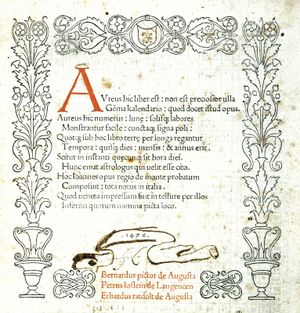 Aureus hic liber est: non est preciosior ulla
Gēma kalendario: quod docet istud opus.
Aureus hic numerus: lune: solisq; labores
Monstrantur facile: cunctaq; signa poli:
Quotq; sub hoc libro terre per longa regantur
Tempora: quisq; dies: mensis: & annus erit.
Scitur in instanti quecunq; sit hora diei.
Hunc emat astrologus qui velit esse cito.
Hoc Ioannes opus regio de monte probatum
Composuit: tota notus in italia.
Quod veneta impressum fuit in tellure per illos
Inferius quorum nomina picta loco.
1476.
Bernardus pictor de Augusta
Petrus loslein de Langencen
Erhardus ratdolt de Augusta